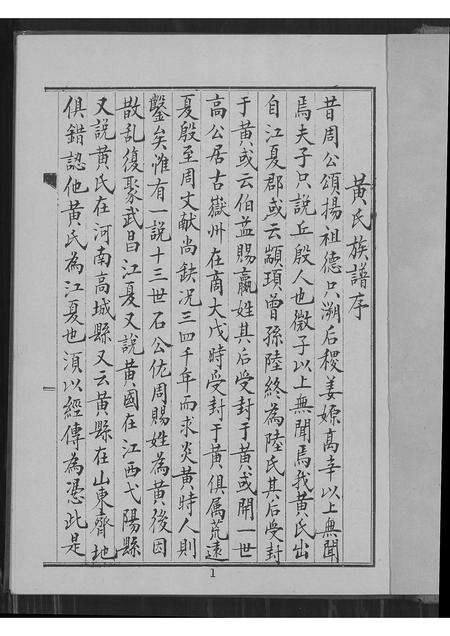 黃氏族譜序
昔周公頌揚祖德只溯后稷姜嫄高辛以上無聞
焉夫子只說丘殷人也微子以上無聞焉我黃氏出
自江夏郡或云顓頊曾孫陸終為陸氏其后受封
于黃或云伯益賜嬴姓其后受封于黃或開一世
高公居古嶽州在商大戊時受封于黃俱屬荒遠
夏殷至周文献尚缺况三四千年而求炎黃時人則
鑿矣惟有一說十三世石公佐周賜姓為黃後因
散乱復聚武昌江夏又說黃國在江西弋陽縣
又說黃氏在河南高城縣又云黃縣在山東齊地
俱錯認他黃氏為江夏也須以經傳為憑此是
1